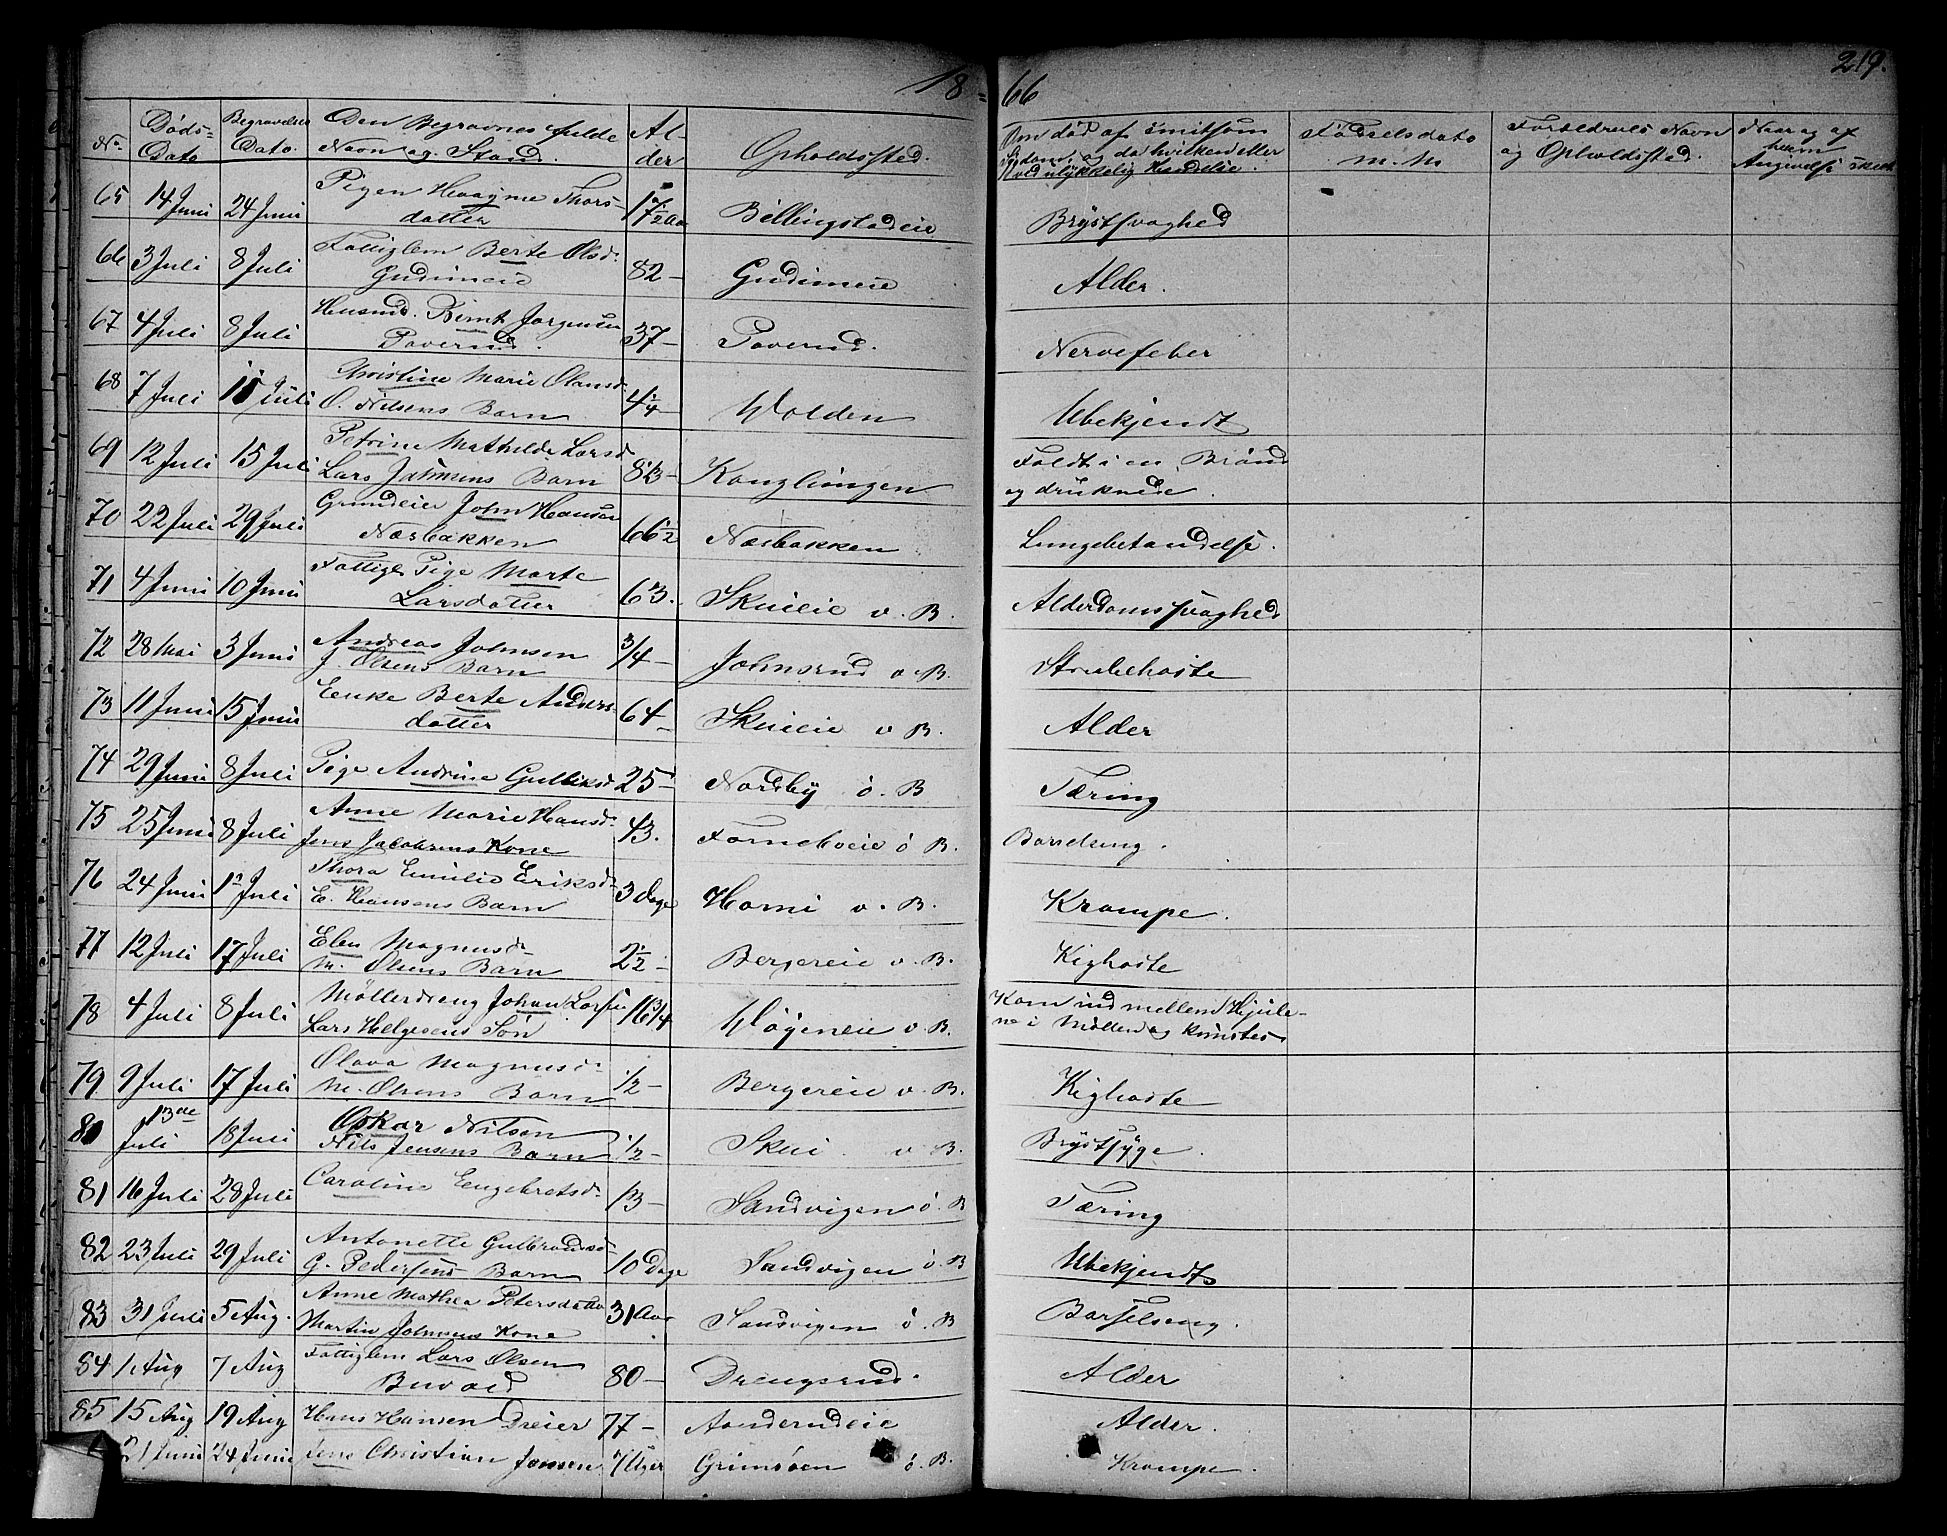 18
66
219.
No.
Døds-
Dato
Begravelses
Dato.
Den Begravnes fulde
Navn og Stand.
Al-
der
Opholdssted.
Om død af smitsom
Sygdom, og da hvilken eller
ved ulykkelig Hændelse.
Fødselsdato
m. m.
Forældrenes Navn
og Opholdssted.
Naar og af
hvem
Angivelse skeet
65 14 Juni 24 Juni Pigen Haagine Thors-
datter 17½ Aar Billingstadeie Brystsvaghed
66 3 Juli 8 Juli Fattiglem Berte Olsd.
Gudimeie 82 - Gudimeie Alder.
67 4 Juli 8 Juli Husmd. Bernt Jørgensen
Toverud. 37 - Toverud. Nervefeber
68 7 Juli 11 Juli Christine Marie Olausd.
O. Nilsens Barn 4¼ Wolden Ubekjendt
69 12 Juli 15 Juli Petrine Mathilde Larsd
Lars Johnsens Barn Konglungen Faldt i en Brønd
og druknede.
70 22 Juli 29 Juli Grundeier John Hansen
Næsbakken 66½ Næsbakken Lungebetændelse.
71 4 Juni 10 Juni Fattigl Pige Marte
Larsdatter 63. Skuieie v. B. Alderdomssvaghed
72 28 Mai 3 Juni Andreas Johnsen
J. Olsens Barn 3/4 - Johnsrud v. B. Strubehoste
73 11 Juni 15 Juni Enke Berte Anders-
datter 64 - Skuieie v B. Alder
74 29 Juni 8 Juli Pige Andrine Gulliksd 25 - Nordby ö. B Tæring
75 25 Juni 8 Juli Anne Marie Hansd.
Jens Jacobsens Kone 43. Forneboeie ö B. Barselseng.
76 24 Juni 1 Juli Thora Emilie Eriksd.
E. Hansens Barn 3 Dage Horni v. B. Krampe.
77 12 Juli 17 Juli Elen Magnusd.
M. Olsens Barn 2½ - Bergereie v. B. Kighoste
78 4 Juli 8 Juli Möllerdreng Johan Larsen
Lars Helgesens Sön 16 3/4 Wøyeneie v. B. Kom ind mellem Hjule-
ne i Möllen og knustes.
79 9 Juli 17 Juli Olava Magnusd.
M. Olsens Barn 1/2 - Bergereie v. B. Kighoste
80 13de
Juli 18 Juli Oskar Nilsen
Nils Jensens Barn 1/2 - Skui v B. Brystsyge.
81 16 Juli 28 Juli Caroline Engebretsd. 13 - Sandvigen ö. B Tæring
82 23 Juli 29 Juli Antonette Gulbrandsd.
G. Pedersens Barn 10 Dage Sandvigen ö. B Ubekjendt
83 31 Juli 5 Aug. Anne Mathea Petersdatter
Martin Johnsens Kone 31 Aar Sandvigen ö. B Barselseng.
84 1 Aug 7 Aug Fattiglem Lars Olsen
Buvold 80 - Drengsrud. Alder
85 15 Aug 19 Aug Hans Hansen Dreier 77 - Aanderudeie Alder.
21 Juni 24 Juni Jens Christian Jensen 7 Uger Grimsöen ö. B. Krampe.